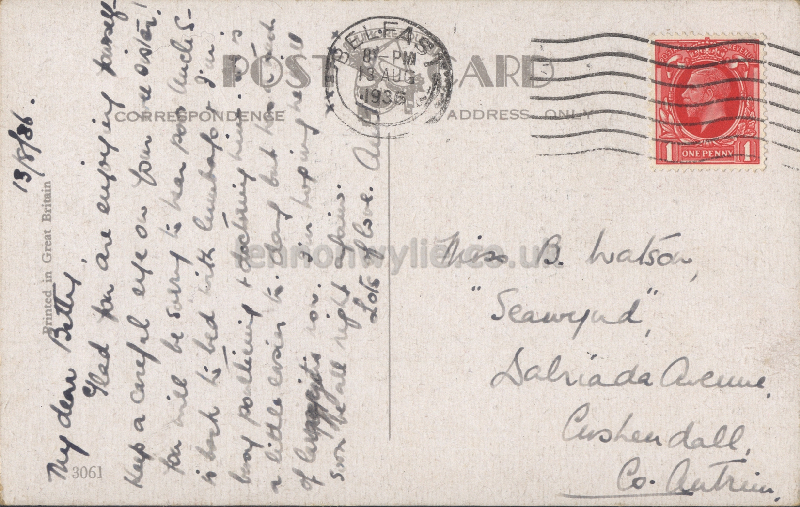 POST CARD
CORRESPONDENCE
ADDRESS ONLY
BELFAST
8 PM
13 AUG
1936
ONE PENNY
1 1
Printed in Great Britain
3061
13/8/36.
My dear Betty,
Glad you are enjoying yourself
keep a careful eye on your wee sister!
You will be sorry to hear poor Uncle S-
is back to bed with lumbago & I'm
busy poulticing & doctoring him. He's
a little easier to-day but has had
of
Soon be all right again.
Lots of love.
Miss B. Watson,
"Seawynd",
Dalriada Avenue,
Cushendall,
Co. Antrim.
leamonwylie.co.uk